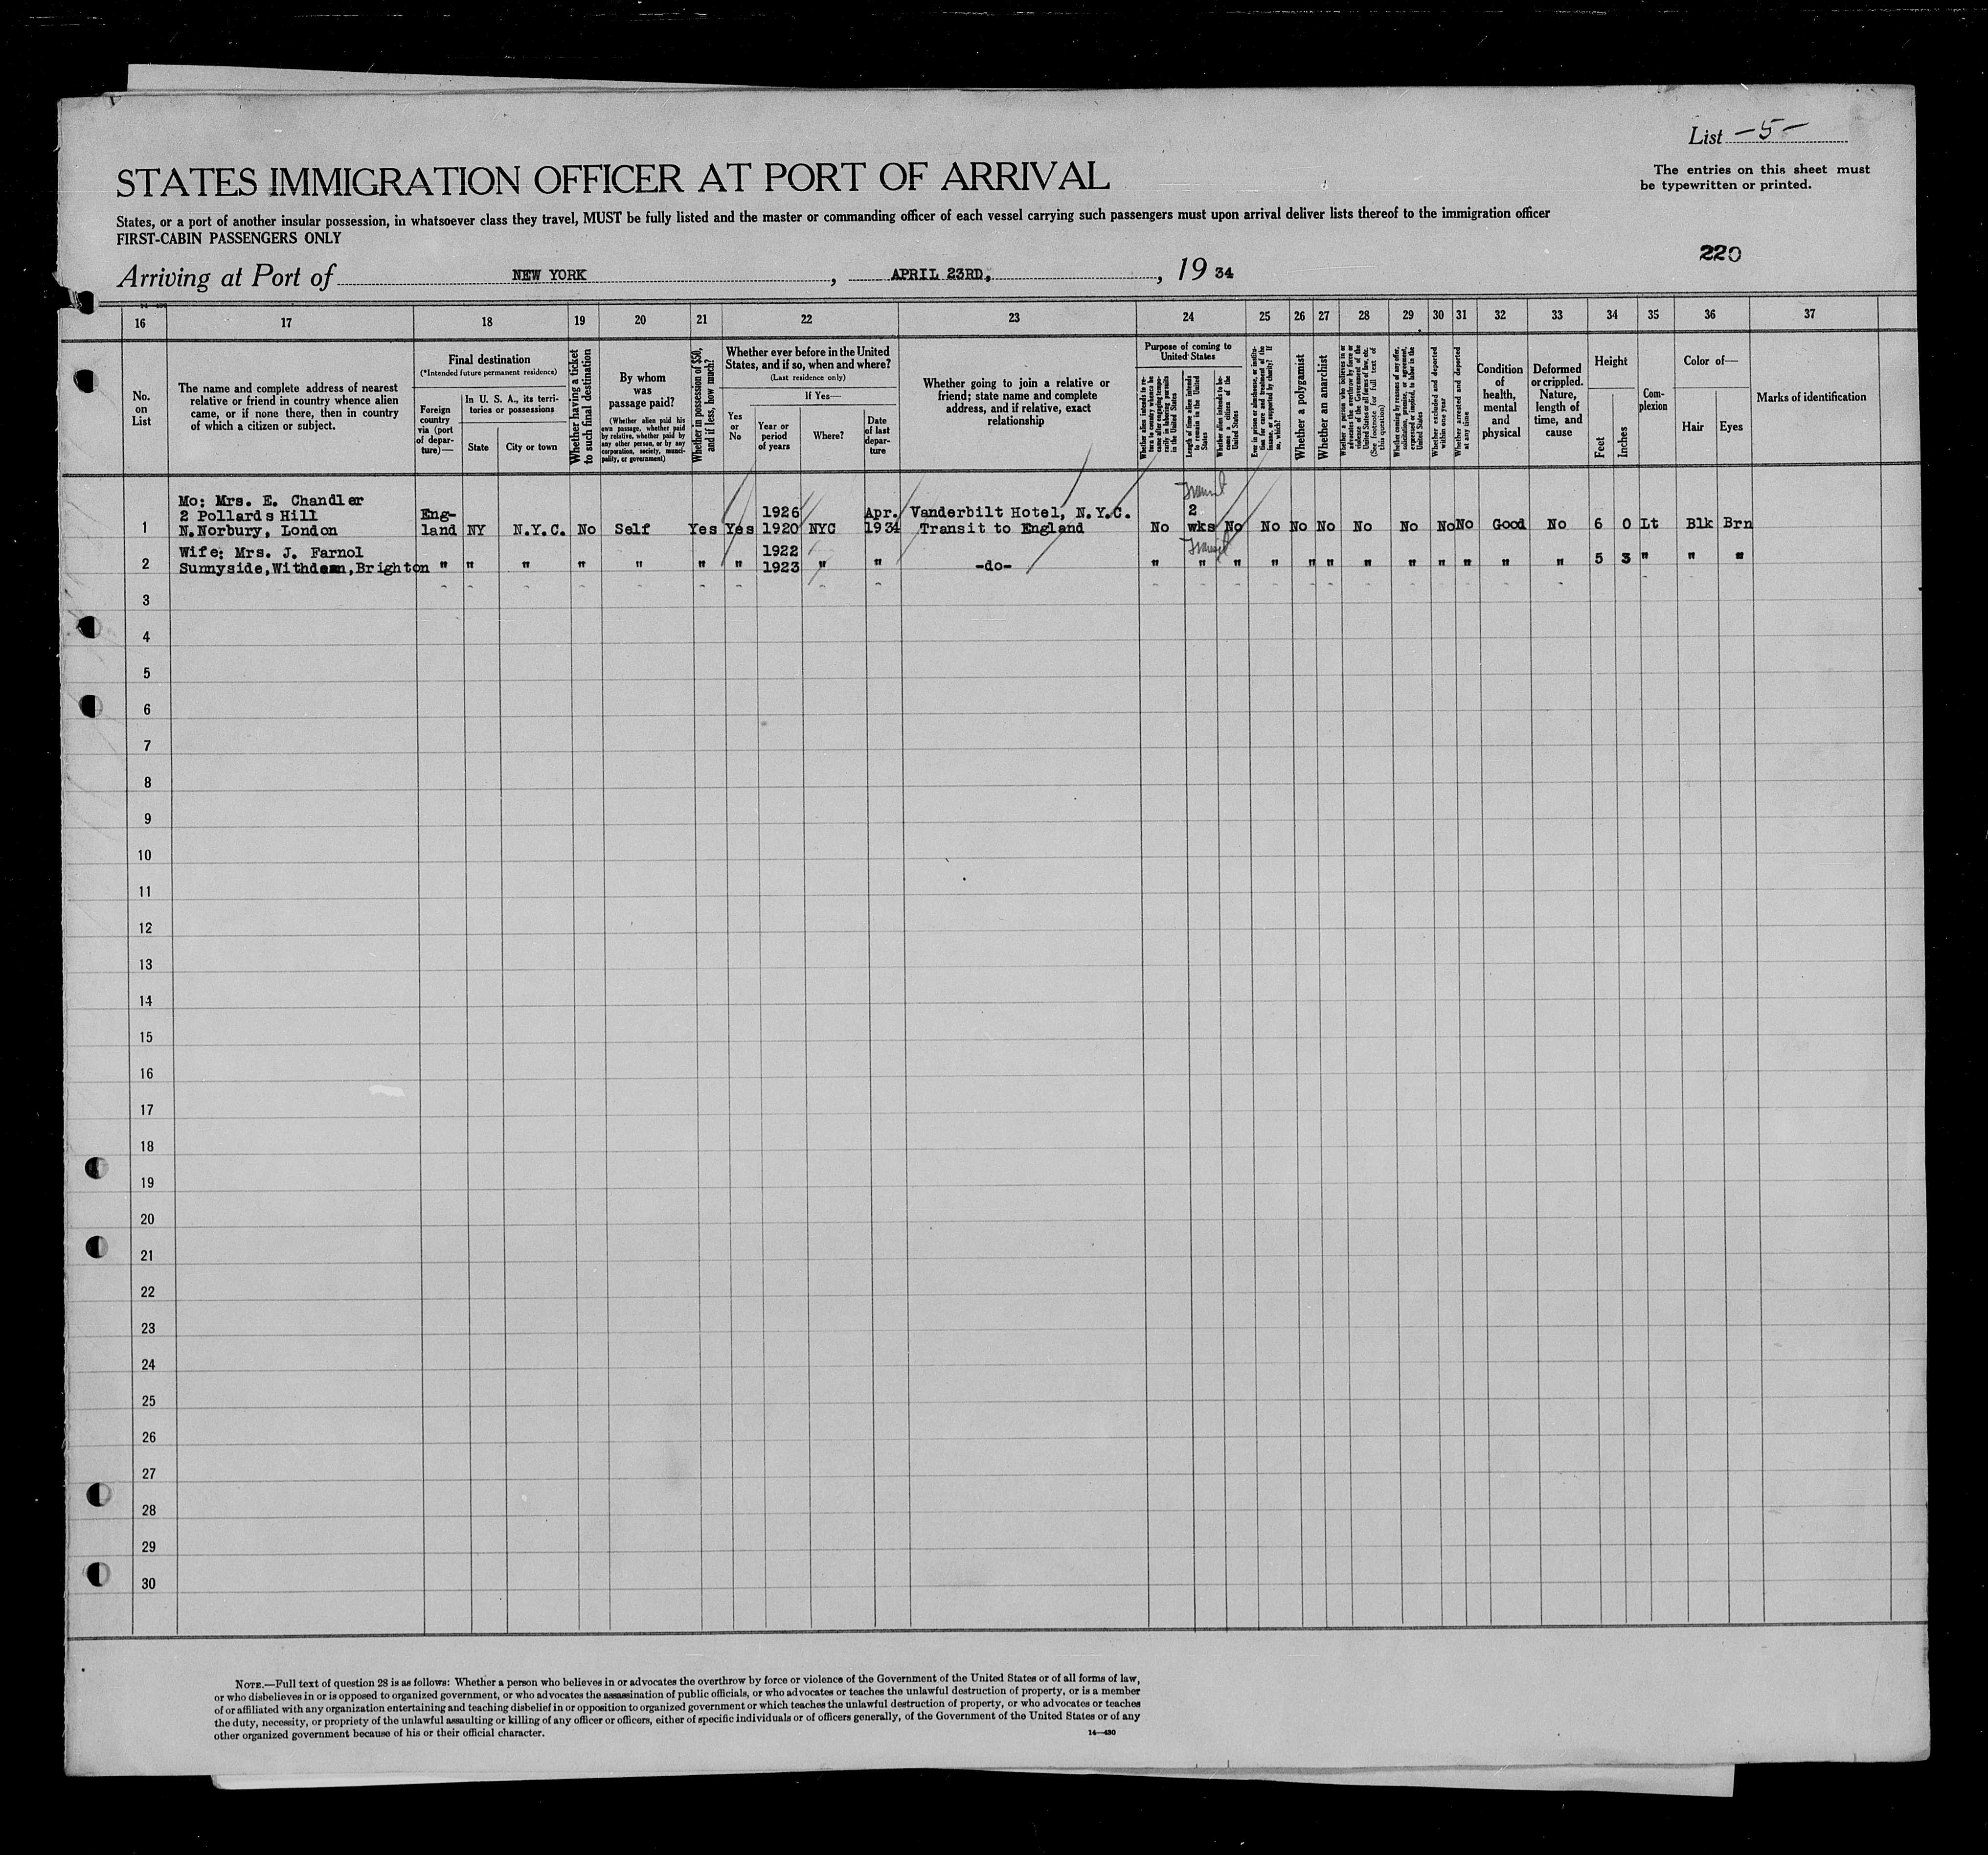 List -5-
The entries on this sheet must
be typewritten or printed.
STATES IMMIGRATION OFFICER AT PORT OF ARRIVAL
States, or a port of another insular possession, in whatsoever class they travel, MUST be fully listed and the master or commanding officer of each vessel carrying such passengers must upon arrival deliver lists thereof to the immigration officer
FIRST-CABIN PASSENGERS ONLY
220
Arriving at Port of NEW YORK, APRIL 23RD, , 19 34
16 17 18 19 20 21 22 23 24 25 26 27 28 29 30 31 32 33 34 35 36 37
No.
on
List
The name and complete address of nearest
relative or friend in country whence alien
came, or if none there, then in country
of which a citizen or subject.
Final destination
(*Intended future permanent residence)
Foreign
country
via (port
of depar-
ture)—
In U. S. A., its terri-
tories or possessions
State
City or town
Whether having a ticket
to such final destination
By whom
was
passage paid?
(Whether alien paid his
own passage, whether paid
by relative, whether paid by
any other person, or by any
corporation, society, munici-
pality, or government)
Whether in possession of $50,
and if less, how much?
Whether ever before in the United
States, and if so, when and where?
(Last residence only)
Yes
or
No
If Yes—
Year or
period
of years
Where?
Date
of last
depar-
ture
Whether going to join a relative or
friend; state name and complete
address, and if relative, exact
relationship
Purpose of coming to
United States
Whether alien intends to re-
turn to country whence he
came after engaging tempo-
rarily in laboring pursuits
in the United States
Length of time alien intends
to remain in the United
States
Whether alien intends to be-
come a citizen of the
United States
Ever in prison or almshouse, or institu-
tion for care and treatment of the
insane, or supported by charity? If
so, which?
Whether a polygamist
Whether an anarchist
Whether a person who believes in or
advocates the overthrow by force or
violence of the Government of the
United States or all forms of law, etc.
(See footnote for full text of
this question)
Whether coming by reasons of any offer,
solicitation, promise, or agreement,
expressed or implied, to labor in the
United States
Whether excluded and deported
within one year
Whether arrested and deported
at any time
Condition
of
health,
mental
and
physical
Deformed
or crippled.
Nature,
length of
time, and
cause
Height
Feet
Inches
Com-
plexion
Color of—
Hair
Eyes
Marks of identification
Mo: Mrs. E. Chandler
2 Pollards Hill Eng- 1926 Apr. Vanderbilt Hotel, N.Y.C. Transit 2
1 N.Norbury, London land NY N.Y.C. No Self Yes Yes 1920 NYC 1934 Transit to England No wks No No No No No No No No Good No 6 0 Lt Blk Brn
Wife: Mrs. J. Farnol 1922 Transit
2 Sunnyside,Withdean,Brighton " " " " " " " 1923 " " -do- " " " " " " " " " " " " 5 3 " " "
3
4
5
6
7
8
9
10
11
12
13
14
15
16
17
18
19
20
21
22
23
24
25
26
27
28
29
30
NOTE.—Full text of question 28 is as follows: Whether a person who believes in or advocates the overthrow by force or violence of the Government of the United States or of all forms of law,
or who disbelieves in or is opposed to organized government, or who advocates the assassination of public officials, or who advocates or teaches the unlawful destruction of property, or is a member
of or affiliated with any organization entertaining and teaching disbelief in or opposition to organized government or which teaches the unlawful destruction of property, or who advocates or teaches
the duty, necessity, or propriety of the unlawful assaulting or killing of any officer or officers, either of specific individuals or of officers generally, of the Government of the United States or of any
other organized government because of his or their official character.
14—430